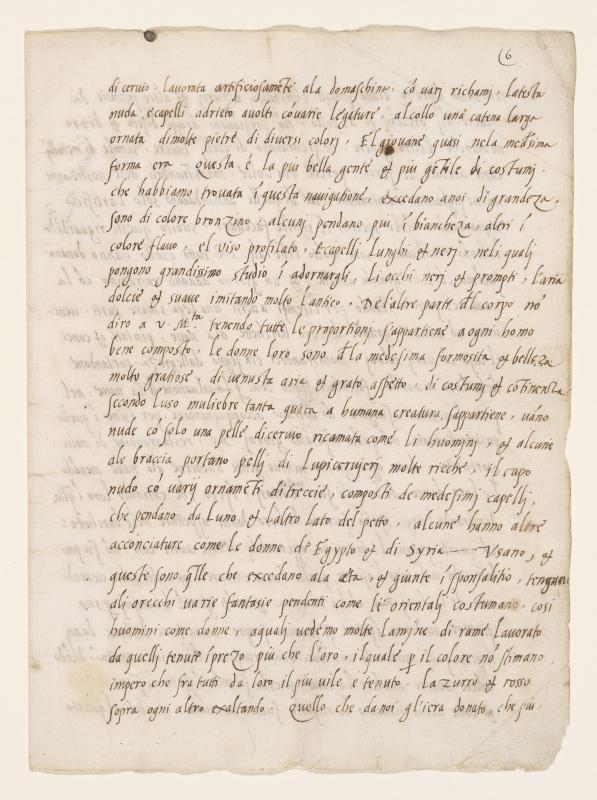 (6
di cervio lavorata artificiosamēte ala domaschina, cō varij richamj. la testa
nuda, e capelli adrieto avolti cō varie legature, al collo una catena larga
ornata di molte pietre di diversi colorj, El giovane quasi nela medesima
forma era. Questa é la più bella gente & più gētile di costumj
che habbiamo trovata ī questa navigatione, excedano a noi di grandeza.
sono di colore bronzino, alcunj pendano più ī biancheza, altri ī
colore flavo, el viso profilato, E capelli lunghi & nerj, neli quali
pongono grandissimo studio ī adornargli, li occhi nerj & prompti, l'aria
dolcie & suave imitando molto l'antico. De l'altre parti dl corpo nō
diro a v. M.ta tenendo tutte le proportionj s'appartiene a ogni homo
bene composto, le donne loro sono dla medesima formosita & belleza
molto gratiose, di venusta aria & grato aspetto, di costumj & cōtinenza
secondo l'uso muliebre tanta quāta a humana creatura s'appartiene, vāno
nude cō solo una pelle di cervio ricamata come li huominj, & alcune
ale braccia portano pellj di lupicervierj molte ricche, il capo
nudo cō varij ornamēti di treccie, composti de medesimj capellj,
che pendano da luno & laltro lato del petto, alcune hanno altre
acconciature come le donne de Egypto & di Syria — Usano, &
queste sono qlle che excedano ala eta, & giunte ī sponsalitio, tengano
ali orecchi varie fantasie pendenti come li orientalj costumano. cosi
huomini come donne, a quali vedēmo molte lamine di rame lavorato
da quelli tenute ī prezo più che l'oro, il quale p il colore nō stimano.
impero che fra tutti da loro il più vile é tenuto. L'azurro & rosso
sopra ogni altro exaltando. Quello che da noi gl'iera donato che più.